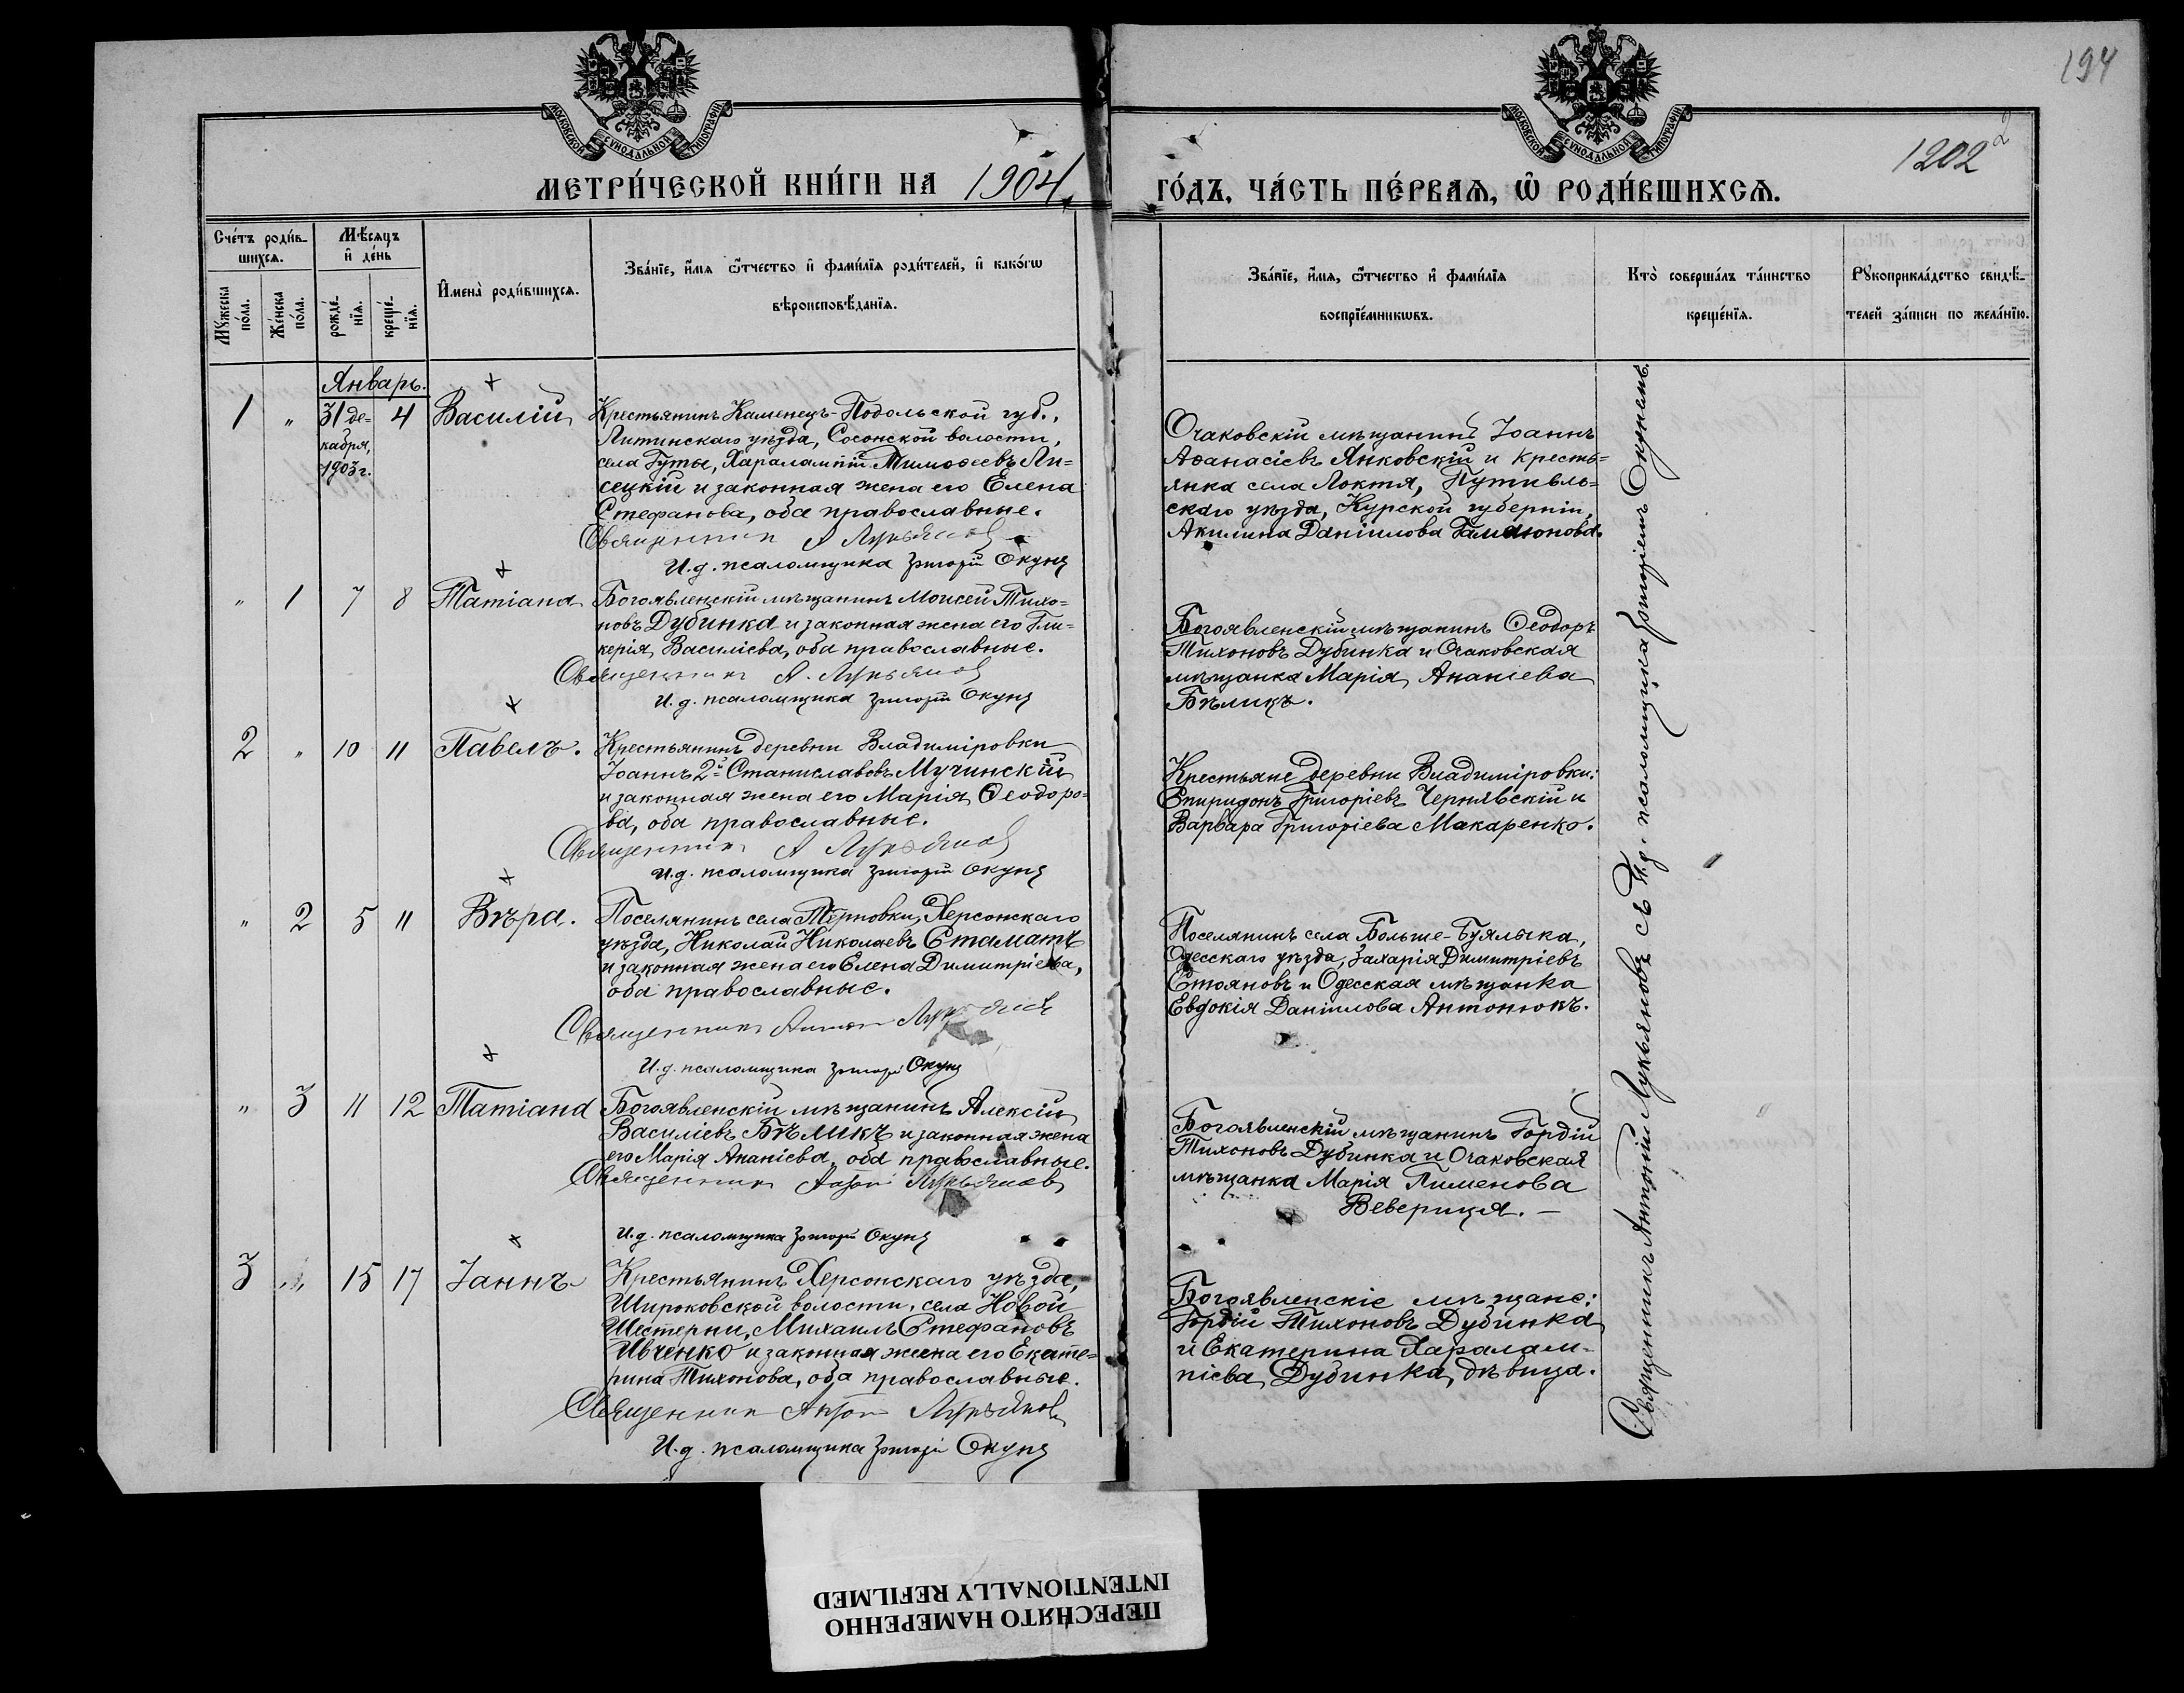 194
1202 2
МОСКОВСКОЙ СѴНОДАЛЬНОЙ ТИПОГРАФІИ
МОСКОВСКОЙ СѴНОДАЛЬНОЙ ТИПОГРАФІИ
МЕТРИ́ЧЕСКОЙ КНИ́ГИ НА 1904 ГО́ДЪ, ЧА́СТЬ ПЕ́РВАѦ, Ѡ҆ РОДИ́ВШИХСѦ.
Сче́тъ роди́в-
шихсѧ.
Мꙋ́жеска
по́ла.
Же́нска
по́ла.
Мѣ́сѧцъ
и҆ де́нь
рожде́-
нїѧ.
креще́-
нїѧ.
И҆мена̀ роди́вшихсѧ.
Зва́нїе, и҆́мѧ ѻ҆́тчество и҆ фами́лїѧ роди́телей, и҆ како́гѡ
вѣроисповѣ́данїѧ.
Зва́нїе, и҆́мѧ, ѻ҆́тчество и҆ фами́лїѧ
воспрїе́мникѡвъ.
Кто̀ соверша́лъ та́инство
креще́нїѧ.
Рꙋкоприкла́дство свидѣ́-
телей за́писи по жела́нїю.
Январь.
1 " 31 де-
кабря,
1903 г.
4 Василій
Крестьянинъ Каменецъ-Подольской губ.,
Литинскаго уѣзда, Сосонской волости,
села Гуты, Харалампій Тимоѳеевъ Ли=
сецкій и законная жена его Елена
Стефанова, оба православные.
Священникъ А Лукьянов
И.д. псаломщика Григорій Окунь
Очаковскій мѣщанинъ Іоаннъ
Аѳанасіевъ Янковскій и кресть=
янка села Локтя, Путивль=
скаго уѣзда, Курской губерніи,
Акилина Даніилова Гамаюнова.
" 1 7 8 Татіана
Богоявленскій мѣщанинъ Моисей Тихо=
новъ Дубинка и законная жена его Гли=
керія Василіева, оба православные.
Священникъ А. Лукьянов
И.д. псаломщика Григорій Окунь
Богоявленскій мѣщанинъ Ѳеодоръ
Тихоновъ Дубинка и Очаковская
мѣщанка Марія Ананіева
Бѣликъ.
2 " 10 11 Павелъ.
Крестьянинъ деревни Владиміровки
Іоаннъ 2й Станиславовъ Мучинскій
и законная жена его Марія Ѳеодоро=
ва, оба православные.
Священникъ А Лукьянов
И.д. псаломщика Григорій Окунь
Крестьяне деревни Владиміровки:
Спиридонъ Григоріевъ Чернявскій и
Варвара Григоріева Макаренко.
" 2 5 11 Вѣра.
Поселянинъ села Терновки, Херсонскаго
уѣзда, Николай Николаевъ Стаматъ
и законная жена его Елена Димитріева,
оба православные.
Священникъ Антон Лукьянов
И.д. псаломщика Григорій Окунь
Поселянинъ села Больше-Буялыка,
Одесскаго уѣзда, Захарія Димитріевъ
Стояновъ и Одесская мѣщанка
Евдокія Даніилова Антонюкъ.
" 3 11 12 Татіана
Богоявленскій мѣщанинъ Алексій
Василіевъ Бѣликъ и законная жена
его Марія Ананіева, оба православные.
Священникъ Антон Лукьяновъ
И.д. псаломщика Григорій Окунь
Богоявленскій мѣщанинъ Гордій
Тихоновъ Дубинка и Очаковская
мѣщанка Марія Пименова
Веверица. —
3 " 15 17 Іаннъ
Крестьянинъ Херсонскаго уѣзда,
Широковской волости, села Новой
Шестерни, Михаилъ Стефановъ
Ивченко и законная жена его Екате=
рина Тихонова, оба православные.
Священник Антон Лукьянов
И.д. псаломщика Григорій Окунь
Богоявленскіе мѣщане:
Гордій Тихоновъ Дубинка
и Екатерина Харалам-
піева Дубинка, дѣвица.
Священникъ Антоній Лукьяновъ съ И.д. псаломщика Григоріемъ Окунемъ.
ПЕРЕСНЯТО НАМЕРЕННО
INTENTIONALLY REFILMED